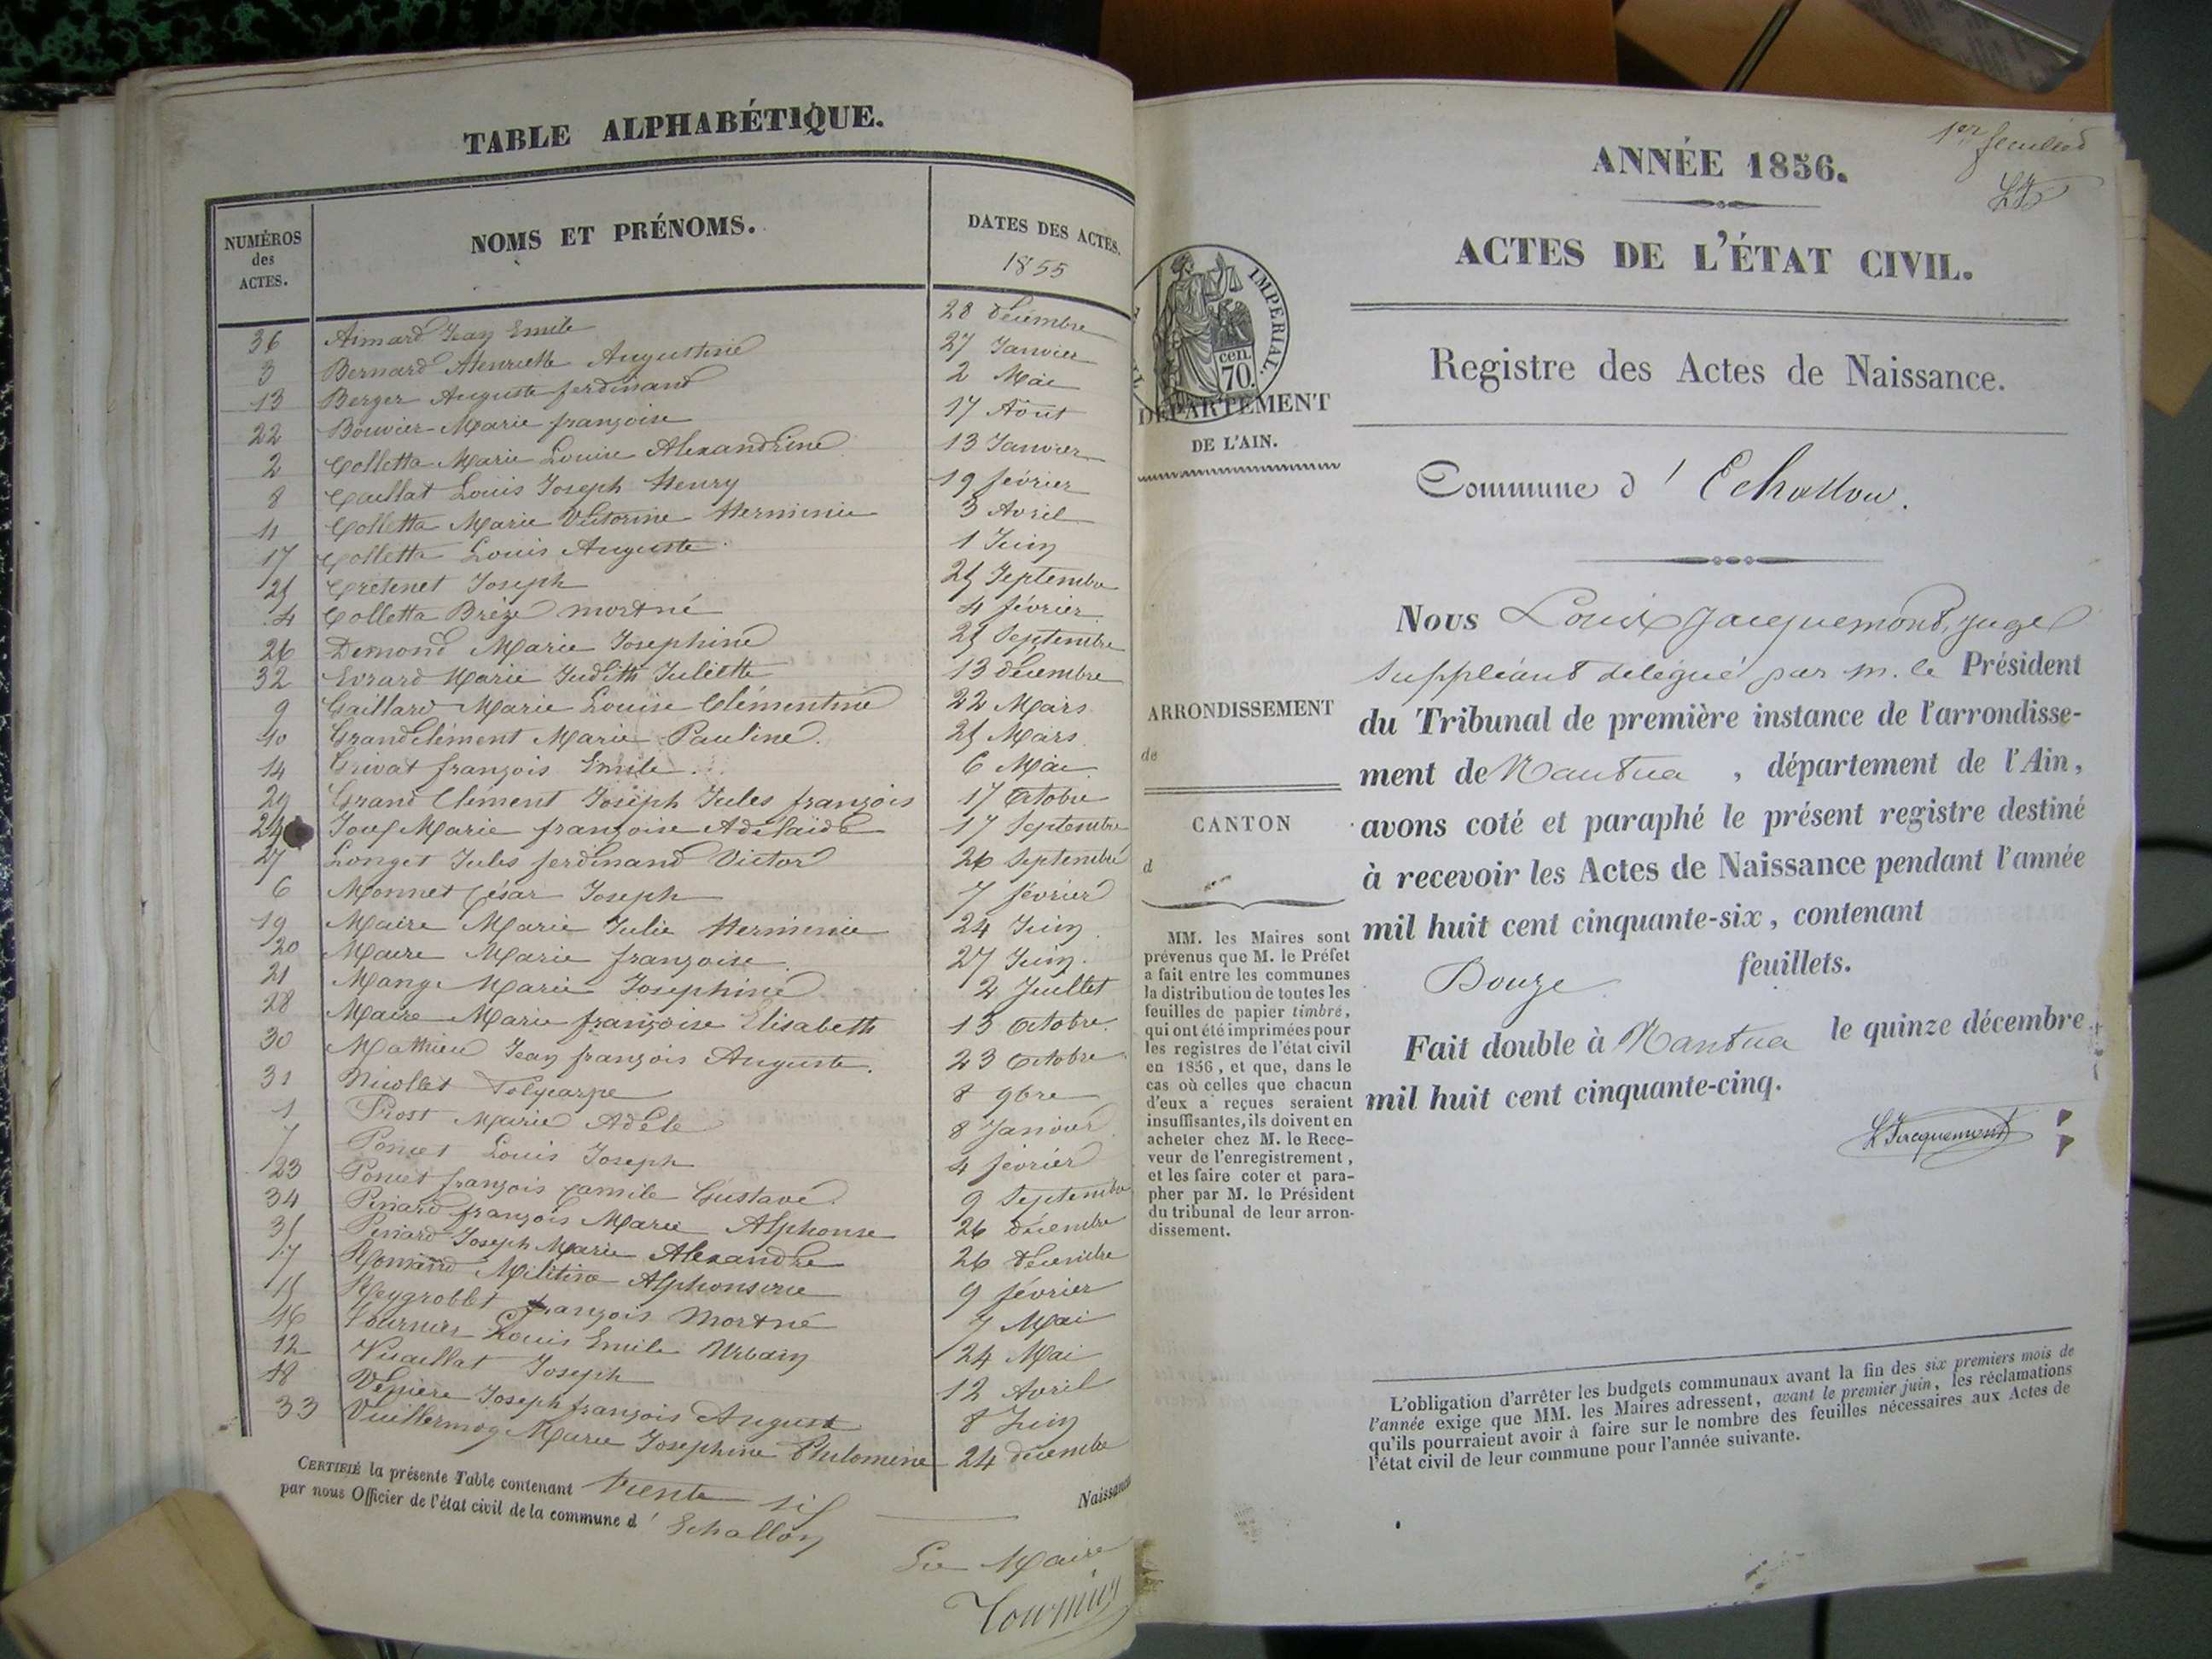 TABLE ALPHABÉTIQUE.
NUMÉROS des ACTES. NOMS ET PRÉNOMS. DATES DES ACTES.
1855
36 Aimard Jean Emile 28 Décembre
3 Bernard Henriette Augustine 27 Janvier
13 Berger Auguste ferdinand 2 Mai
22 Bouvier Marie françoise 17 Août
2 Colletta Marie Louise Alexandrine 13 Janvier
8 Caillat Louis Joseph Henry 19 février
11 Colletta Marie Victorine Herminie 3 Avril
17 Colletta Louis Auguste 1 Juin
25 Crétenet Joseph 25 Septembre
4 Colletta Brèze mortné 4 février
26 Demond Marie Josephine 25 Septembre
32 Evrard Marie Judith Juliette 13 décembre
9 Gaillard Marie Louise Clémentine 22 Mars
10 Grandclément Marie Pauline 25 Mars
14 Grivat françois Emile 6 Mai
29 Grand Clément Joseph Jules françois 17 Octobre
24 Marie françoise Adelaïde 17 Septembre
27 Longet Jules ferdinand Victor 26 Septembre
6 Monnet César Joseph 7 février
19 Maire Marie Julie Herminie 24 Juin
20 Maire Marie françoise 27 Juin
21 Mange Marie Josephine 2 Juillet
28 Maire Marie françoise Elisabeth 13 Octobre
30 Mathieu Jean françois Auguste 23 Octobre
31 Nicollet Polycarpe 8 9bre
1 Prost Marie Adèle 8 Janvier
Poncet Louis Joseph 4 février
23 Poncet françois Camile Gustave 9 Septembre
34 Pinard françois Marie Alphonse 26 décembre
35 Pinard Joseph Marie Alexandre 26 décembre
Alphonsine 9 février
15 Reygrobllet françois Mortné 7 Mai
16 Tournier Louis Emile Urbain 24 Mai
12 Vuaillat Joseph 12 Avril
18 Joseph françois Auguste 8 Juin
33 Vuillermoz Marie Josephine Philomène 24 décembre
CERTIFIÉ la présente Table contenant Trente six
Naissances
par nous Officier de l'état civil de la commune d' Echallon
Le Maire
Tournier
1er feuillet
ANNÉE 1856.
LJ
ACTES DE L'ÉTAT CIVIL.
IMPERIAL.
70. cen.
DÉPARTEMENT
DE L'AIN.
Registre des Actes de Naissance.
Commune d' Echallon.
ARRONDISSEMENT
de
CANTON
d
MM. les Maires sont
prévenus que M. le Préfet
a fait entre les communes
la distribution de toutes les
feuilles de papier timbré,
qui ont été imprimées pour
les registres de l'état civil
en 1856, et que, dans le
cas où celles que chacun
d'eux a reçues seraient
insuffisantes, ils doivent en
acheter chez M. le Rece-
veur de l'enregistrement,
et les faire coter et para-
pher par M. le Président
du tribunal de leur arron-
dissement.
Nous Louis Jacquemont, juge
suppléant délégué par m. le Président
du Tribunal de première instance de l'arrondisse-
ment de Nantua, département de l'Ain,
avons coté et paraphé le présent registre destiné
à recevoir les Actes de Naissance pendant l'année
mil huit cent cinquante-six, contenant
Douze feuillets.
Fait double à Nantua le quinze décembre
mil huit cent cinquante-cinq.
LJacquemont
L'obligation d'arrêter les budgets communaux avant la fin des six premiers mois de
l'année exige que MM. les Maires adressent, avant le premier juin, les réclamations
qu'ils pourraient avoir à faire sur le nombre des feuilles nécessaires aux Actes de
l'état civil de leur commune pour l'année suivante.